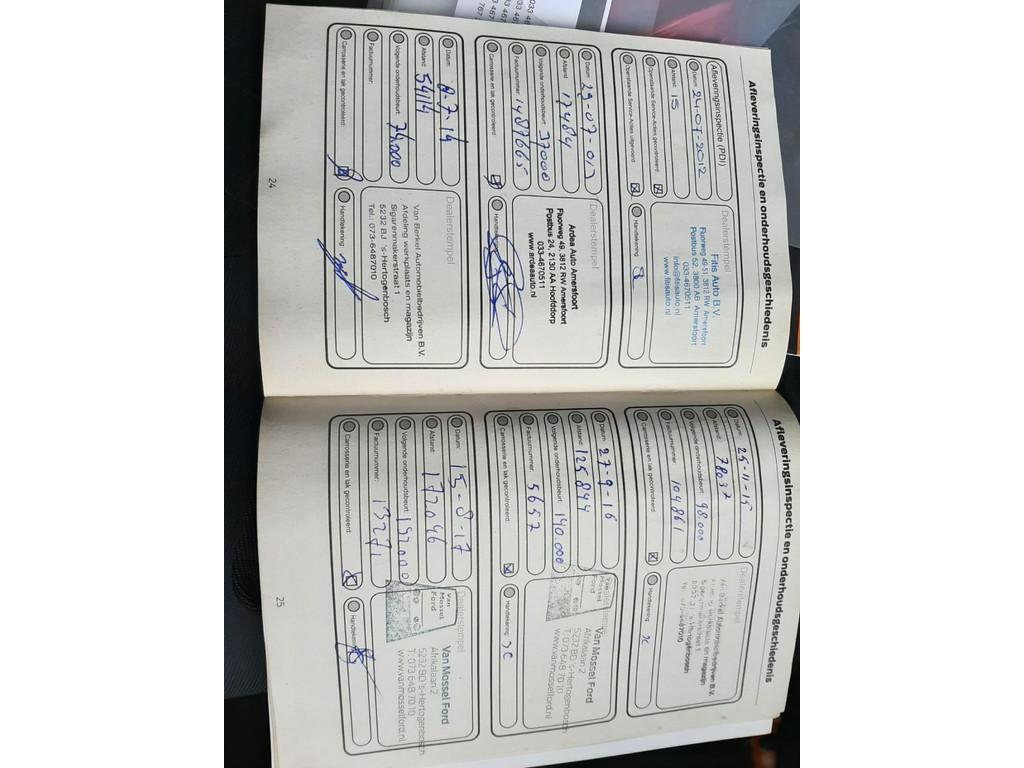 Afleveringsinspectie en onderhoudsgeschiedenis
Afleveringsinspectie (PDI)
Datum: 24-07-2012
Afstand: 15
Openstaande Service-Acties gecontroleerd:
Openstaande Service-Acties uitgevoerd:
Dealerstempel
Fitis Auto B.V.
Fluorweg 49-51, 3812 RW Amersfoort
Postbus 52, 3800 AB Amersfoort
033-4670511
info@fitisauto.nl
www.fitisauto.nl
Handtekening:
Datum: 29-07-013
Afstand: 17484
Volgende onderhoudsbeurt: 37000
Factuurnummer: 1487665
Carrosserie en lak gecontroleerd:
Dealerstempel
Ardea Auto Amersfoort
Fluorweg 49, 3812 RW Amersfoort
Postbus 24, 2130 AA Hoofddorp
033-4670511
www.ardeaauto.nl
Datum: 8-7-14
Afstand: 54114
Volgende onderhoudsbeurt: 74.000
Factuurnummer:
Carrosserie en lak gecontroleerd:
Dealerstempel
Van Berkel Automobielbedrijven B.V.
Afdeling werkplaats en magazijn
Sigarenmakerstraat 1
5232 BJ 's-Hertogenbosch
Tel.: 073-6487010
Handtekening:
24
Afleveringsinspectie en onderhoudsgeschiedenis
Datum: 25-11-15
Afstand: 78037
Volgende onderhoudsbeurt: 98.000
Factuurnummer: 104861
Carrosserie en lak gecontroleerd:
Dealerstempel
Van Berkel Automobielbedrijven B.V.
Handtekening:
Datum: 27-9-16
Afstand: 125844
Volgende onderhoudsbeurt: 140.000
Factuurnummer: 5652
Carrosserie en lak gecontroleerd:
Van Mossel Ford
Van Mossel Ford
Afrikalaan 2
5232 BD 's-Hertogenbosch
T: 073 648 70 10
www.vanmosselford.nl
Handtekening:
Datum: 15-8-17
Afstand: 177046
Volgende onderhoudsbeurt: 192000
Factuurnummer: 13271
Carrosserie en lak gecontroleerd:
Dealerstempel
Van Mossel Ford
Van Mossel Ford
Afrikalaan 2
5232 BD 's-Hertogenbosch
T: 073 648 70 10
www.vanmosselford.nl
Handtekening:
25